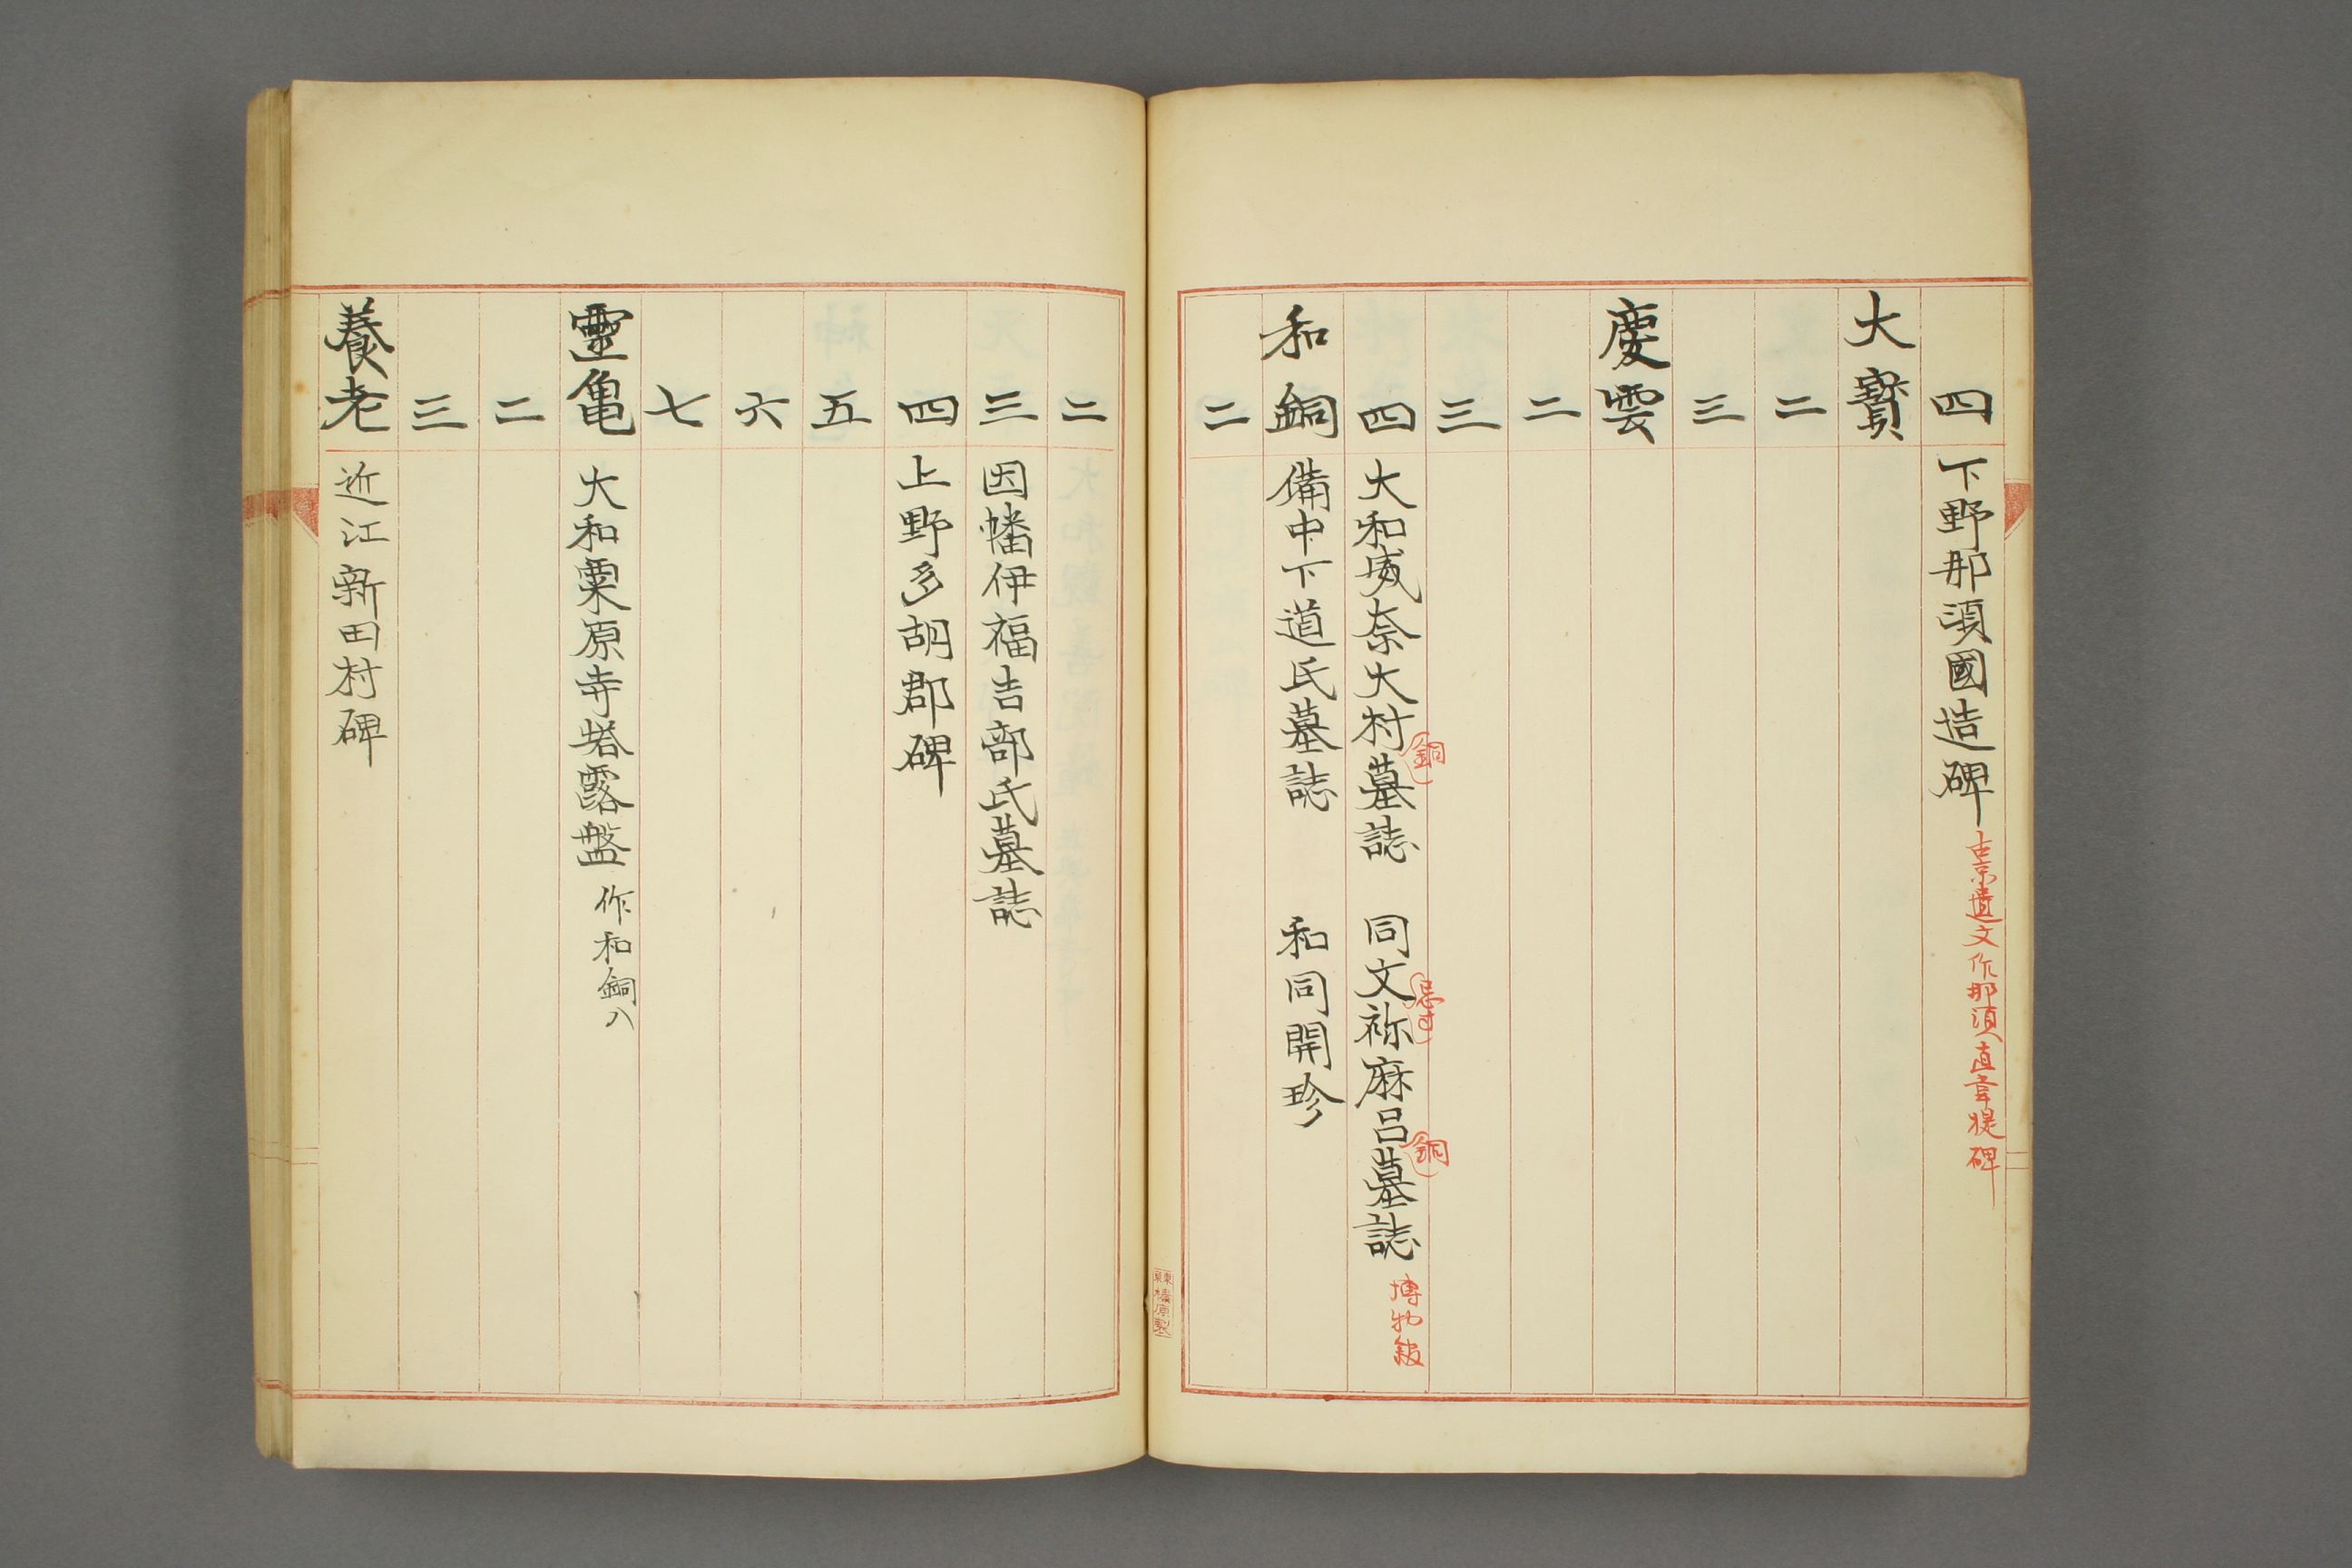 四 下野那須國造碑 古京遺文作那須直韋提碑
大寶
二
三
慶雲
二
三
四 大和威奈大村銅墓誌 同文忌寸祢麻呂銅墓誌 博物館
和銅 備中下道氏墓誌 和同開珍
二
東京榛原製
二
三 因幡伊福吉部氏墓誌
四 上野多胡郡碑
五
六
七
靈亀 大和粟原寺塔露盤 作和銅八
二
三
養老 近江新田村碑